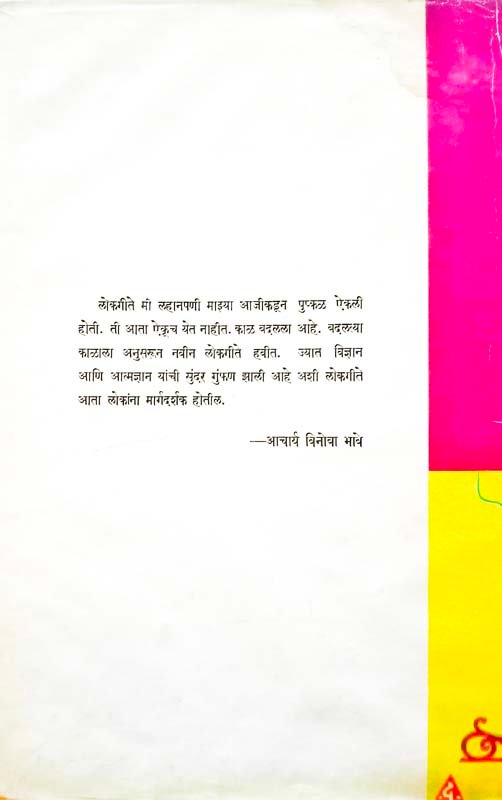 लोकगीते मी लहानपणी माझ्या आजीकडून पुष्कळ ऐकली
होती. ती आता ऐकूच येत नाहीत. काळ बदलला आहे. बदलत्या
काळाला अनुसरून नवीन लोकगीते हवीत. ज्यात विज्ञान
आणि आत्मज्ञान यांची सुंदर गुंफण झाली आहे अशी लोकगीते
आता लोकांना मार्गदर्शक होतील.
—आचार्य विनोबा भावे